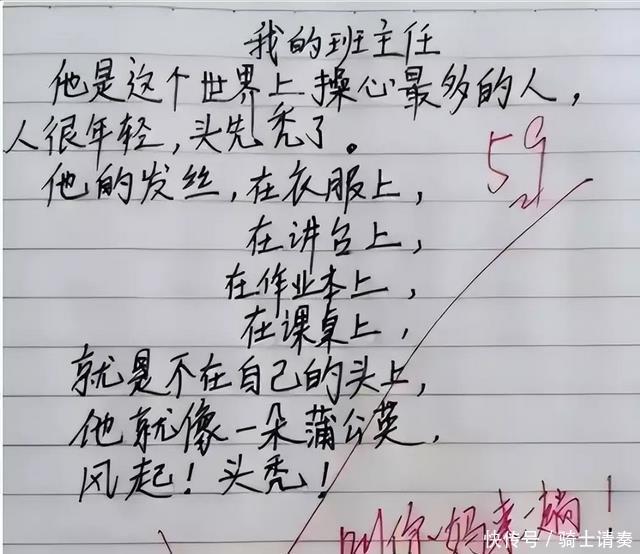 我的班主任
他是这个世界上操心最多的人，
人很年轻，头先秃了。
59
他的发丝，在衣服上，
在讲台上，
在作业本上，
在课桌上，
就是不在自己的头上，
他就像一朵蒲公英，
风起！头秃！
叫你妈来一趟！
快传号／骑士请奏